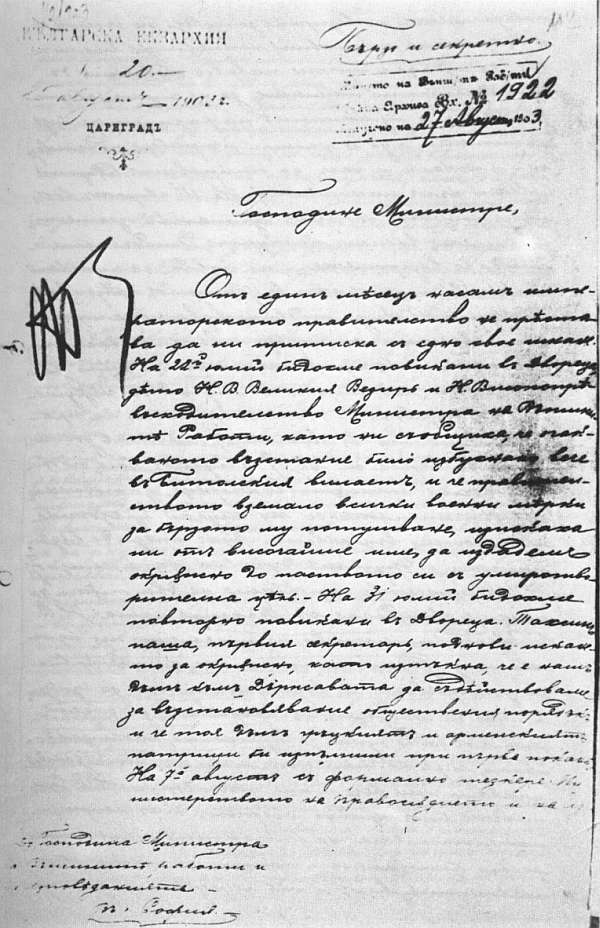 БЪЛГАРСКА ЕКЗАРХИЯ
20
Августъ 1903 г.
ЦАРИГРАДЪ
Бърз и секретно.
на Външ.
Архива Вх. № 1922
на 27 Август 1903.
Господине Министре,
Отъ единъ мѣсецъ насамъ импе-
раторското правителство не прѣста-
ва да ни притиска съ едно свое искане.
На 22й юлий бидохме повикани въ Двореца
дѣто Н. В. Великия Везиръ и Н. Високопрѣ-
восходителство Министра на Външни-
тѣ Работи, като ни съобщиха, че очак-
ваното възстание било избухнало вече
въ Битолския вилаетъ, и че правител-
ството вземало всички военни мѣрки
за бързото му потушване, изискаха
ни отъ височайше име, да издадемъ
окрѫжно до паството си съ умиротво-
рителна цѣль. - На 31 юлий бидохме
повторно повикани въ Двореца. Тахсинъ
паша, първия секретарь, поднови искане-
то за окрѫжно, като изтъкна, че е нашъ
дългъ къмъ Държавата да съдѣйствоваме
за възстановлявание обществения порядъкъ
и че тоя дългъ гръцкиятъ и арменскиятъ
патрици би изпълнили при първа покана.
На 7й августъ съ формално тезкере Ми-
нистерството на правосѫдието и на из
Господина Министра
Външнитѣ работи и
Исповѣданията
въ София.